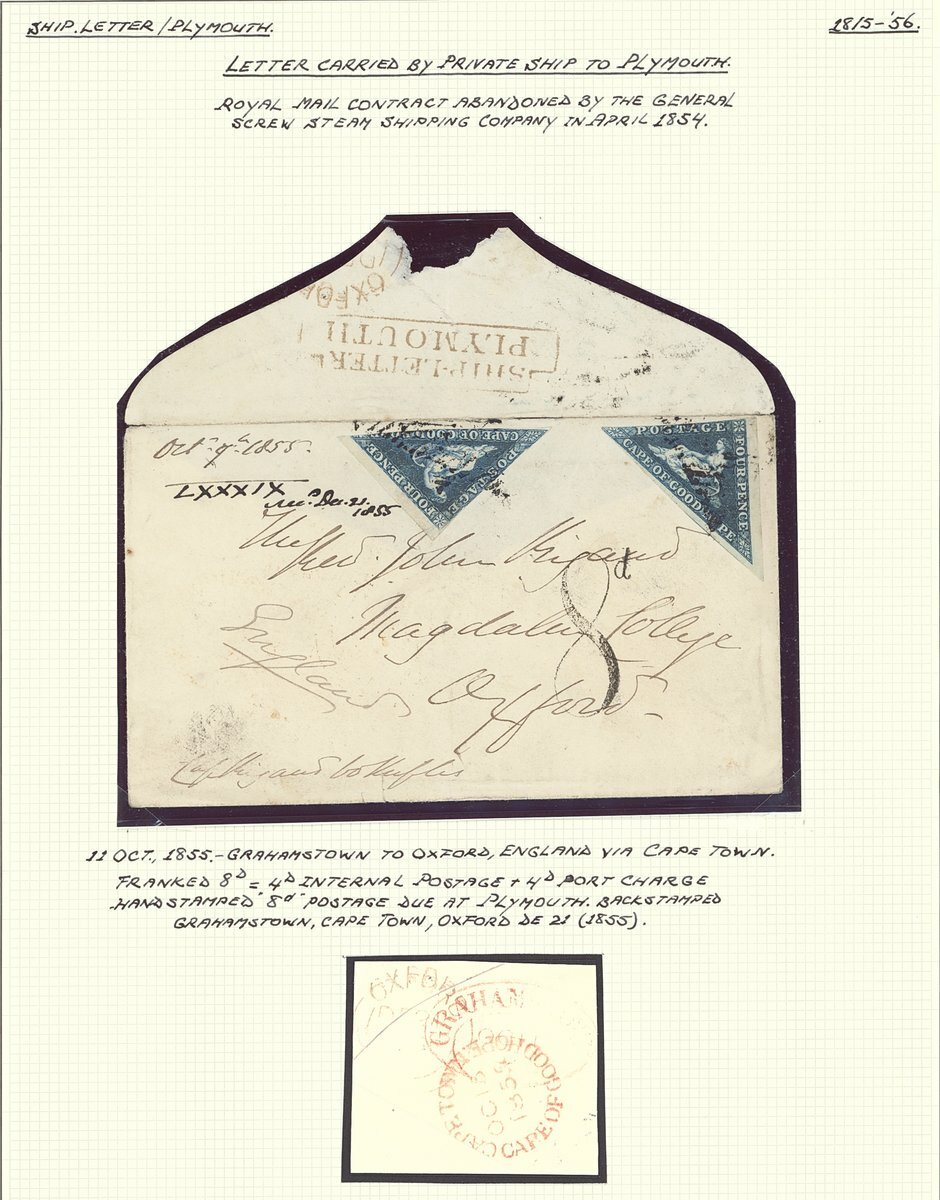 SHIP.LETTER/PLYMOUTH.
1815-'56.
LETTER CARRIED BY PRIVATE SHIP TO PLYMOUTH.
ROYAL MAIL CONTRACT ABANDONED BY THE GENERAL
SCREW STEAM SHIPPING COMPANY IN APRIL 1854.
OXFOR
SHIP-LETTER
PLYMOUTH
Octr 9th 1855.
CAPE OF GOOD
POSTAGE
FOUR-PENCE
POSTAGE
FOUR-PENCE
CAPE OF GOOD HOPE
LXXXIX
recd De. 21
1855
The
Revd. John Rigaud
8d
Magdalen College
Oxford
England
11 OCT., 1855.-GRAHAMSTOWN TO OXFORD, ENGLAND VIA CAPE TOWN.
FRANKED 8D = 4D INTERNAL POSTAGE + 4D PORT CHARGE
HANDSTAMPED "8d" POSTAGE DUE AT PLYMOUTH. BACKSTAMPED
GRAHAMSTOWN, CAPE TOWN, OXFORD DE 21 (1855).
OXFOR
GRAHAM
CAPE TOWN CAPE OF GOOD HOPE
OC 16
1855